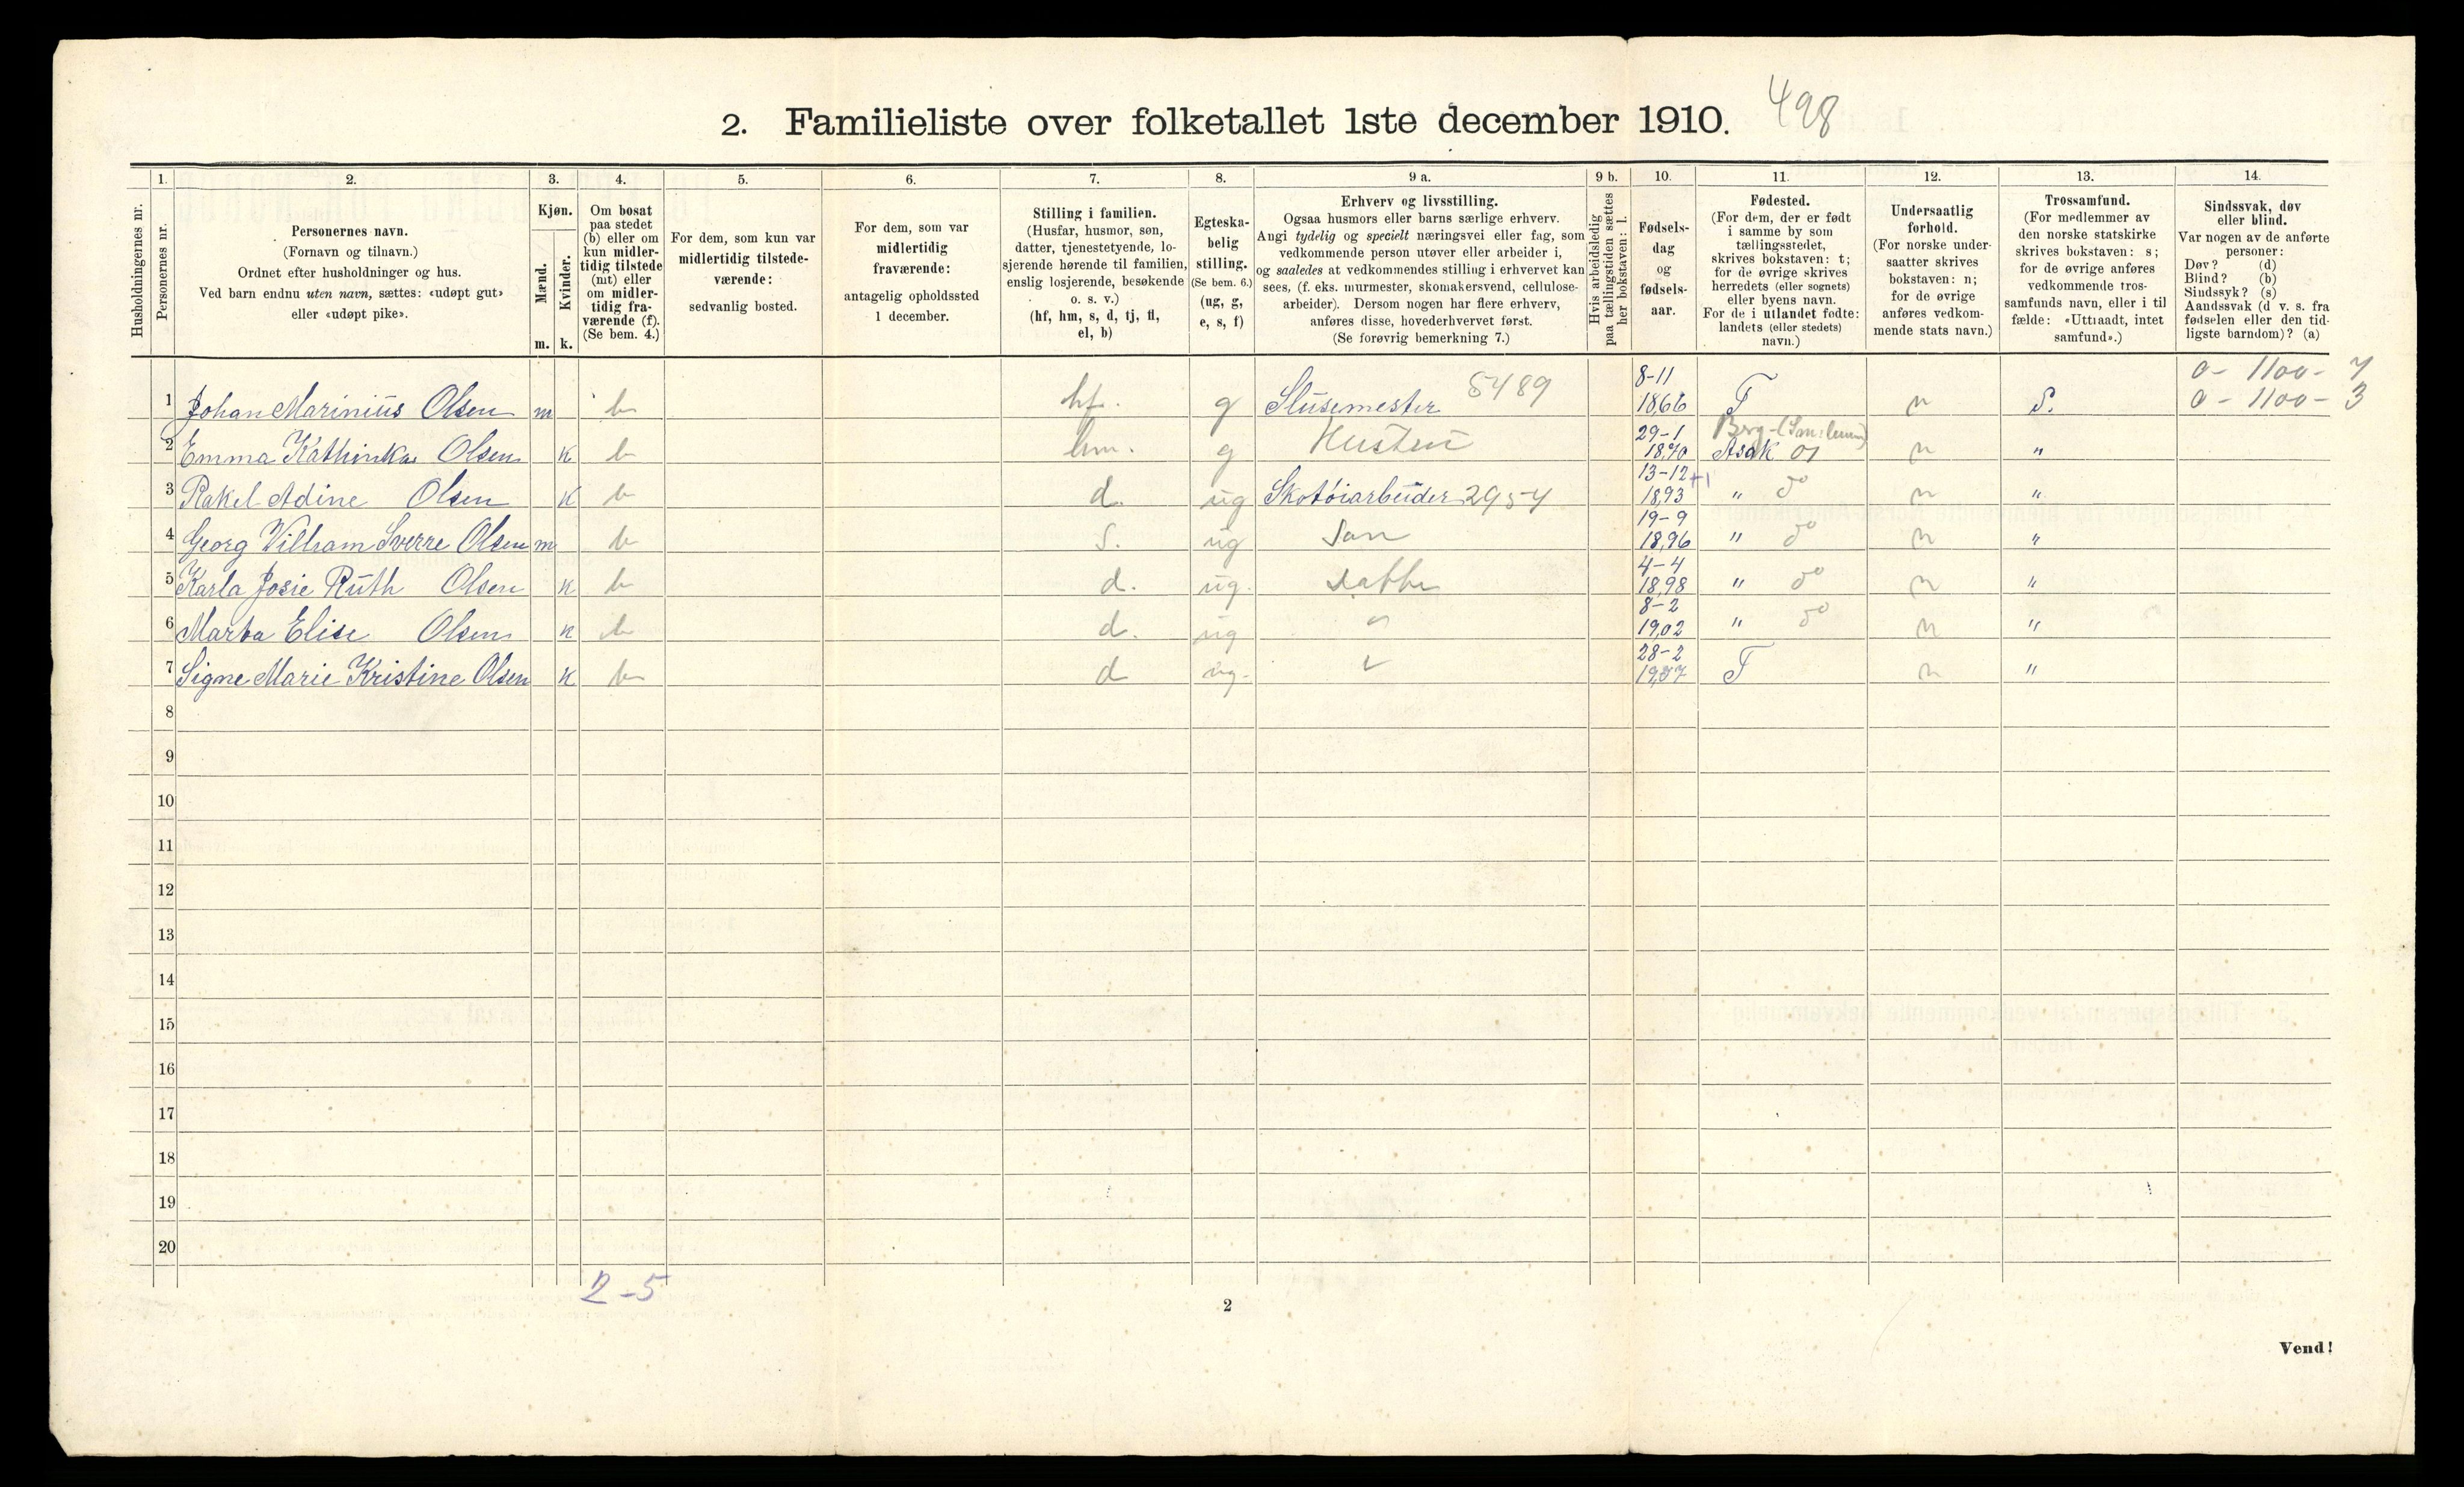 498
2. Familieliste over folketallet 1ste december 1910.
Husholdningernes nr.
1.
Personernes nr.
2.
Personernes navn.
(Fornavn og tilnavn.)
Ordnet efter husholdninger og hus.
Ved barn endnu uten navn, sættes: «udøpt gut»
eller «udøpt pike».
3.
Kjøn.
Mænd.
Kvinder.
m. k.
4.
Om bosat
paa stedet
(b) eller om
kun midler-
tidig tilstede
(mt) eller
om midler-
tidig fra-
værende (f).
(Se bem. 4.)
5.
For dem, som kun var
midlertidig tilstede-
værende:
sedvanlig bosted.
6.
For dem, som var
midlertidig
fraværende:
antagelig opholdssted
1 december.
7.
Stilling i familien.
(Husfar, husmor, søn,
datter, tjenestetyende, lo-
sjerende hørende til familien,
enslig losjerende, besøkende
o. s. v.)
(hf, hm, s, d, tj, fl,
el, b)
8.
Egteska-
belig
stilling.
(Se bem. 6.)
(ug, g,
e, s, f)
9 a.
Erhverv og livsstilling.
Ogsaa husmors eller barns særlige erhverv.
Angi tydelig og specielt næringsvei eller fag, som
vedkommende person utøver eller arbeider i,
og saaledes at vedkommendes stilling i erhvervet kan
sees, (f. eks. murmester, skomakersvend, cellulose-
arbeider). Dersom nogen har flere erhverv,
anføres disse, hovederhvervet først.
(Se forøvrig bemerkning 7.)
9 b.
Hvis arbeidsledig
paa tællingstiden sættes
her bokstaven: l.
10.
Fødsels-
dag
og
fødsels-
aar.
11.
Fødested.
(For dem, der er født
i samme by som
tællingsstedet,
skrives bokstaven: t;
for de øvrige skrives
herredets (eller sognets)
eller byens navn.
For de i utlandet fødte:
landets (eller stedets)
navn.)
12.
Undersaatlig
forhold.
(For norske under-
saatter skrives
bokstaven: n;
for de øvrige
anføres vedkom-
mende stats navn.)
13.
Trossamfund.
(For medlemmer av
den norske statskirke
skrives bokstaven: s;
for de øvrige anføres
vedkommende tros-
samfunds navn, eller i til
fælde: «Uttraadt, intet
samfund».)
14.
Sindssvak, døv
eller blind.
Var nogen av de anførte
personer:
Døv? (d)
Blind? (b)
Sindssyk? (s)
Aandssvak (d v. s. fra
fødselen eller den tid-
ligste barndom)? (a)
0 - 1100 - 7
1 Johan Marinius Olsen m b hf. g Slusemester 5489 8-11 1866 T n S. 0 - 1100 - 3
2 Emma Kathinka Olsen k b hm. g Hustru 29-1 1870 Berg Asak n "
3 Rakel Adine Olsen k b d. ug Skotøiarbeider 2954 13-12 1893 +1 " do n "
4 Georg Vilham Sverre Olsen m b S. ug Søn 19-9 1896 " do n "
5 Karla Josie Ruth Olsen k b d. ug. datter 4-4 1898 " do n "
6 Marta Elise Olsen k b d. ug " 8-2 1902 " do n "
7 Signe Marie Kristine Olsen k b d ug. 28-2 1907 T n "
8
9
10
11
12
13
14
15
16
17
18
19
20
2-5
2
Vend!